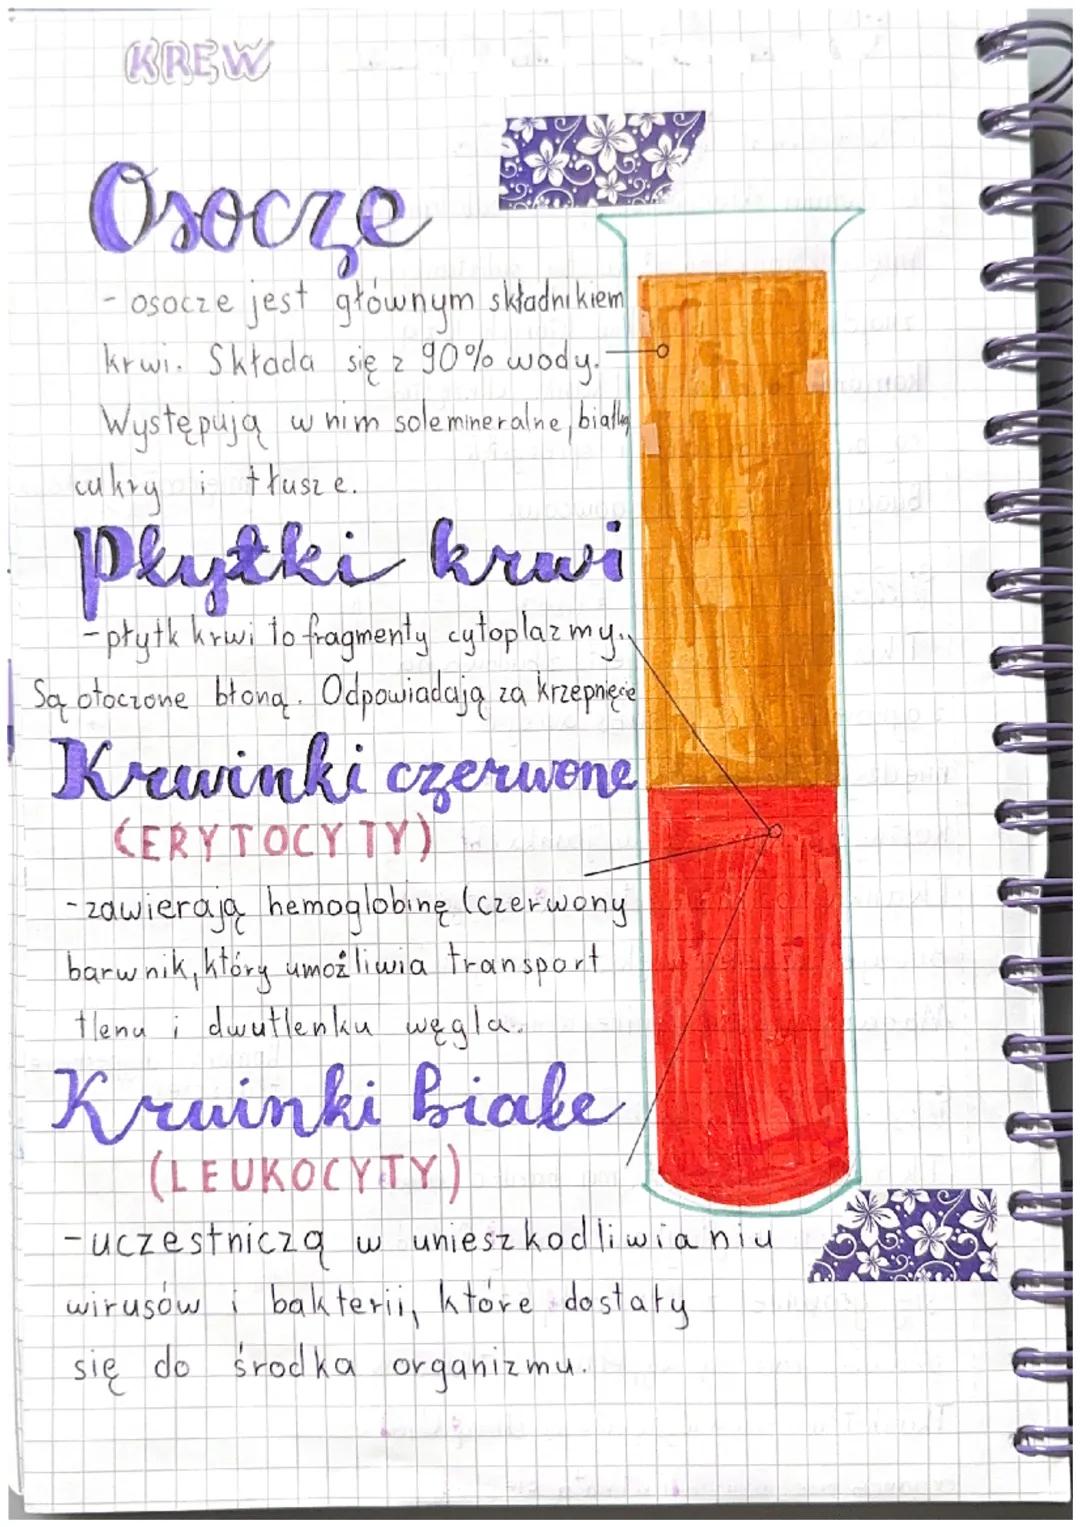 KREW
Osocze
- osocze jest głównym składnikiem
krwi. Składa się z 90% wody.
Występują w nim sole mineralne, białka
cukry i tłusze.
Płytki krwi
- płytk krwi to fragmenty cytoplazmy.
Są otoczone błoną. Odpowiadają za krzepnięcie
Krwinki czerwone
(ERYTOCYTY)
- zawierają hemoglobinę (czerwony
barwnik, który umożliwia transport
tlenu i dwutlenku węgla.
Krwinki Białe
(LEUKOCYTY)
- uczestniczą w unieszkodliwianiu
wirusów i bakterii, które dostały
się do środka organizmu.